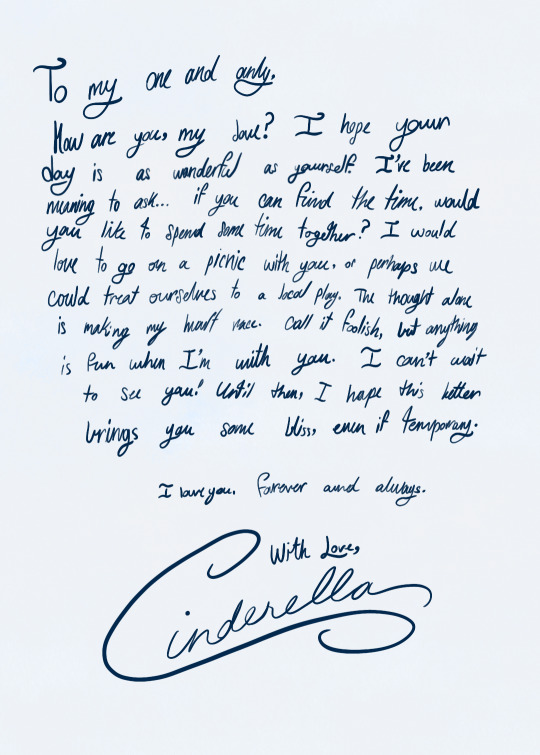 To my one and only,
How are you, my love? I hope your
day is as wonderful as yourself. I've been
meaning to ask... if you can find the time, would
you like to spend some time together? I would
love to go on a picnic with you, or perhaps we
could treat ourselves to a local play. The thought alone
is making my heart race. Call it foolish, but anything
is fun when I'm with you. I can't wait
to see you! Until then, I hope this letter
brings you some bliss, even if temporary.
I love you. Forever and always.
With Love,
Cinderella